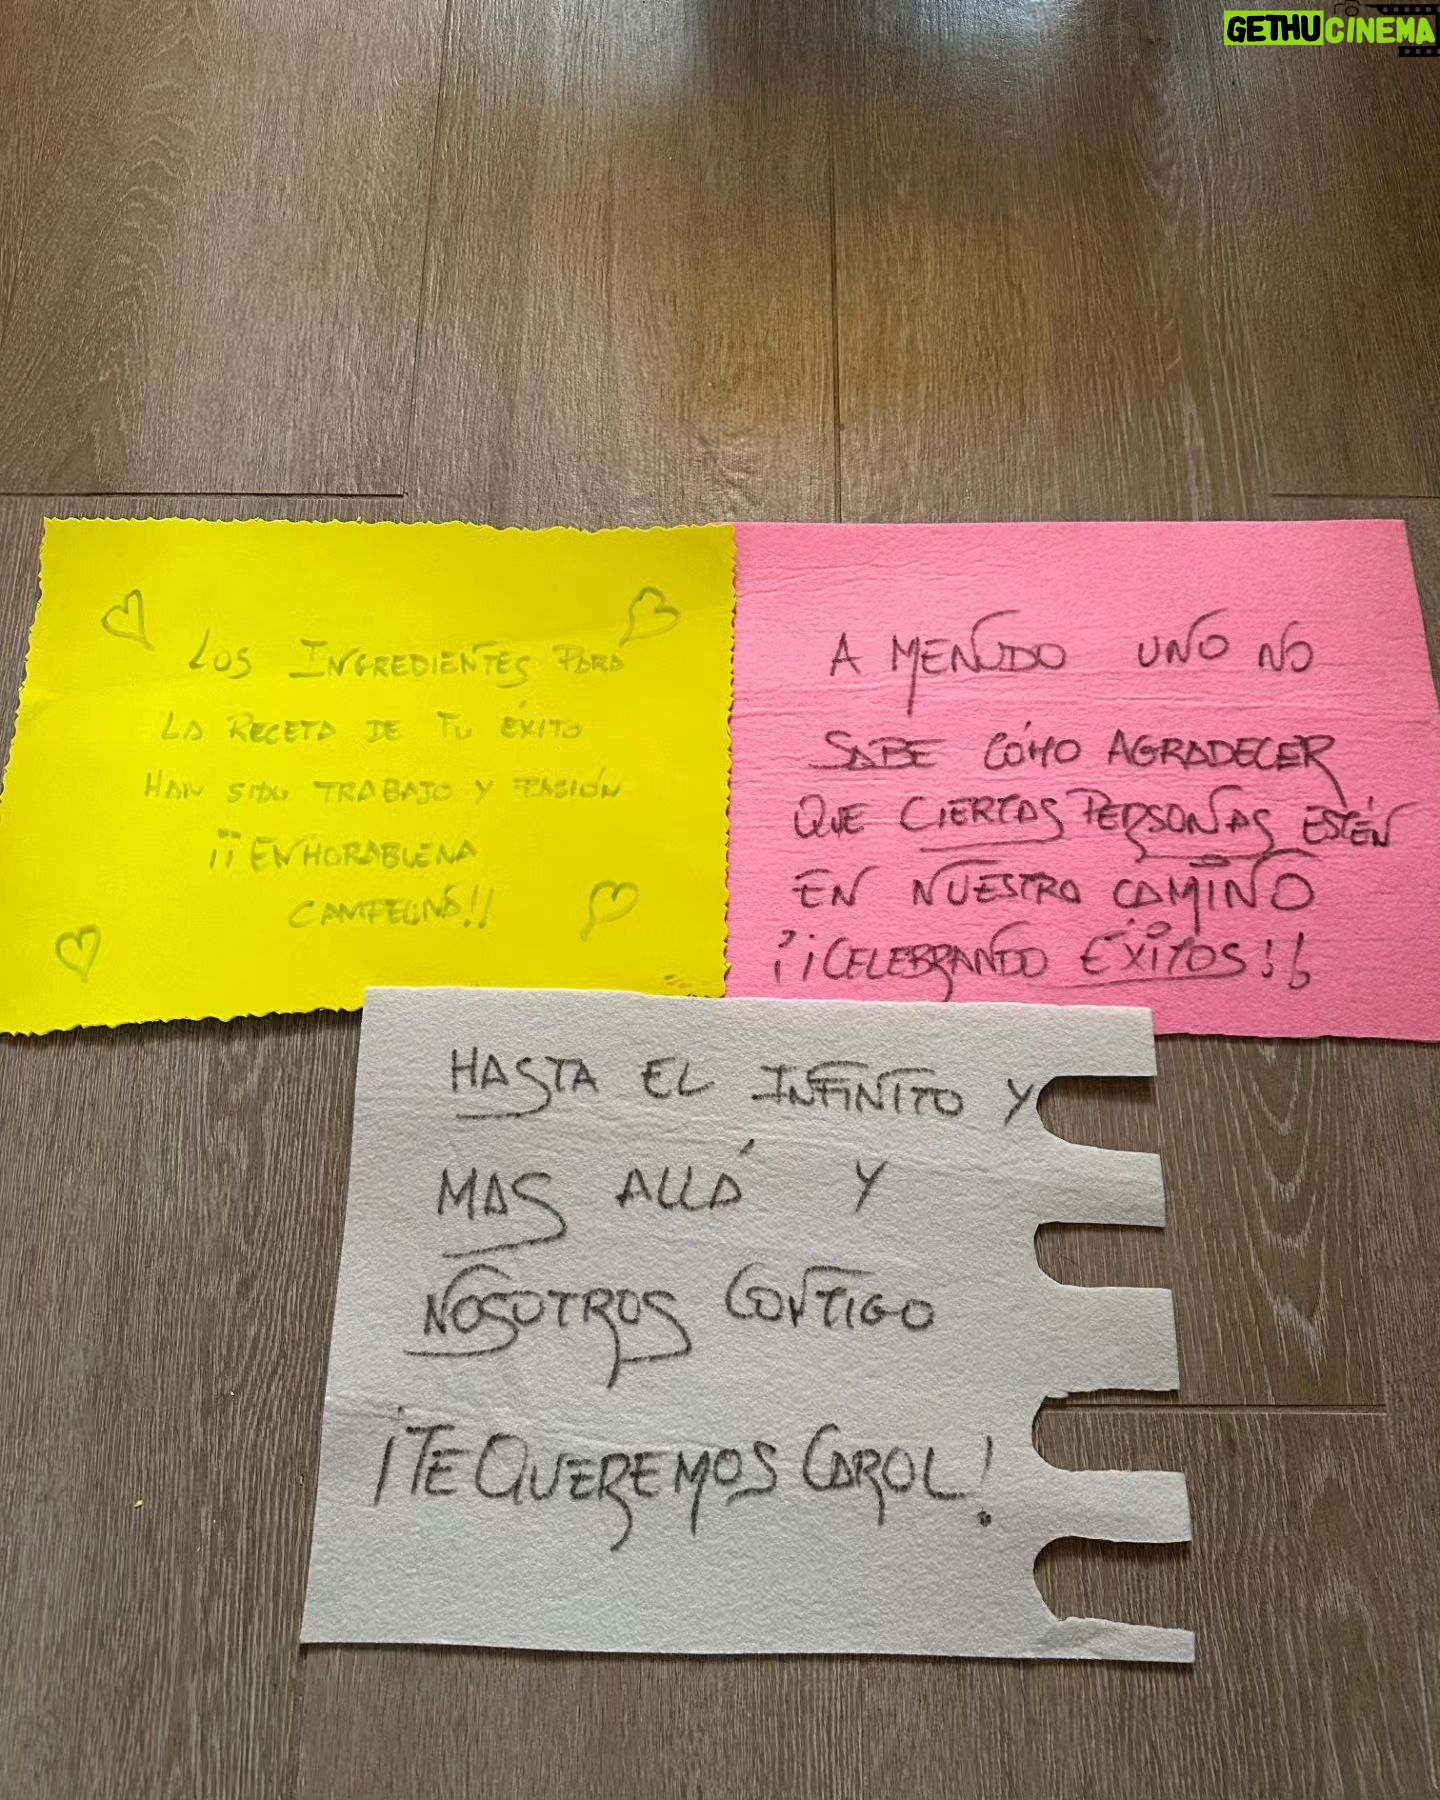 GETHUCINEMA
LOS INGREDIENTES PARA
LA RECETA DE TU ÉXITO
HAN SIDO TRABAJO Y PASIÓN
¡¡ENHORABUENA
CAMPEONA!!
A MENUDO UNO NO
SABE CÓMO AGRADECER
QUE CIERTAS PERSONAS ESTÉN
EN NUESTRO CAMINO
¡¡CELEBRANDO ÉXITOS!!
HASTA EL INFINITO Y
MAS ALLÁ Y
NOSOTROS CONTIGO
¡TE QUEREMOS CAROL!